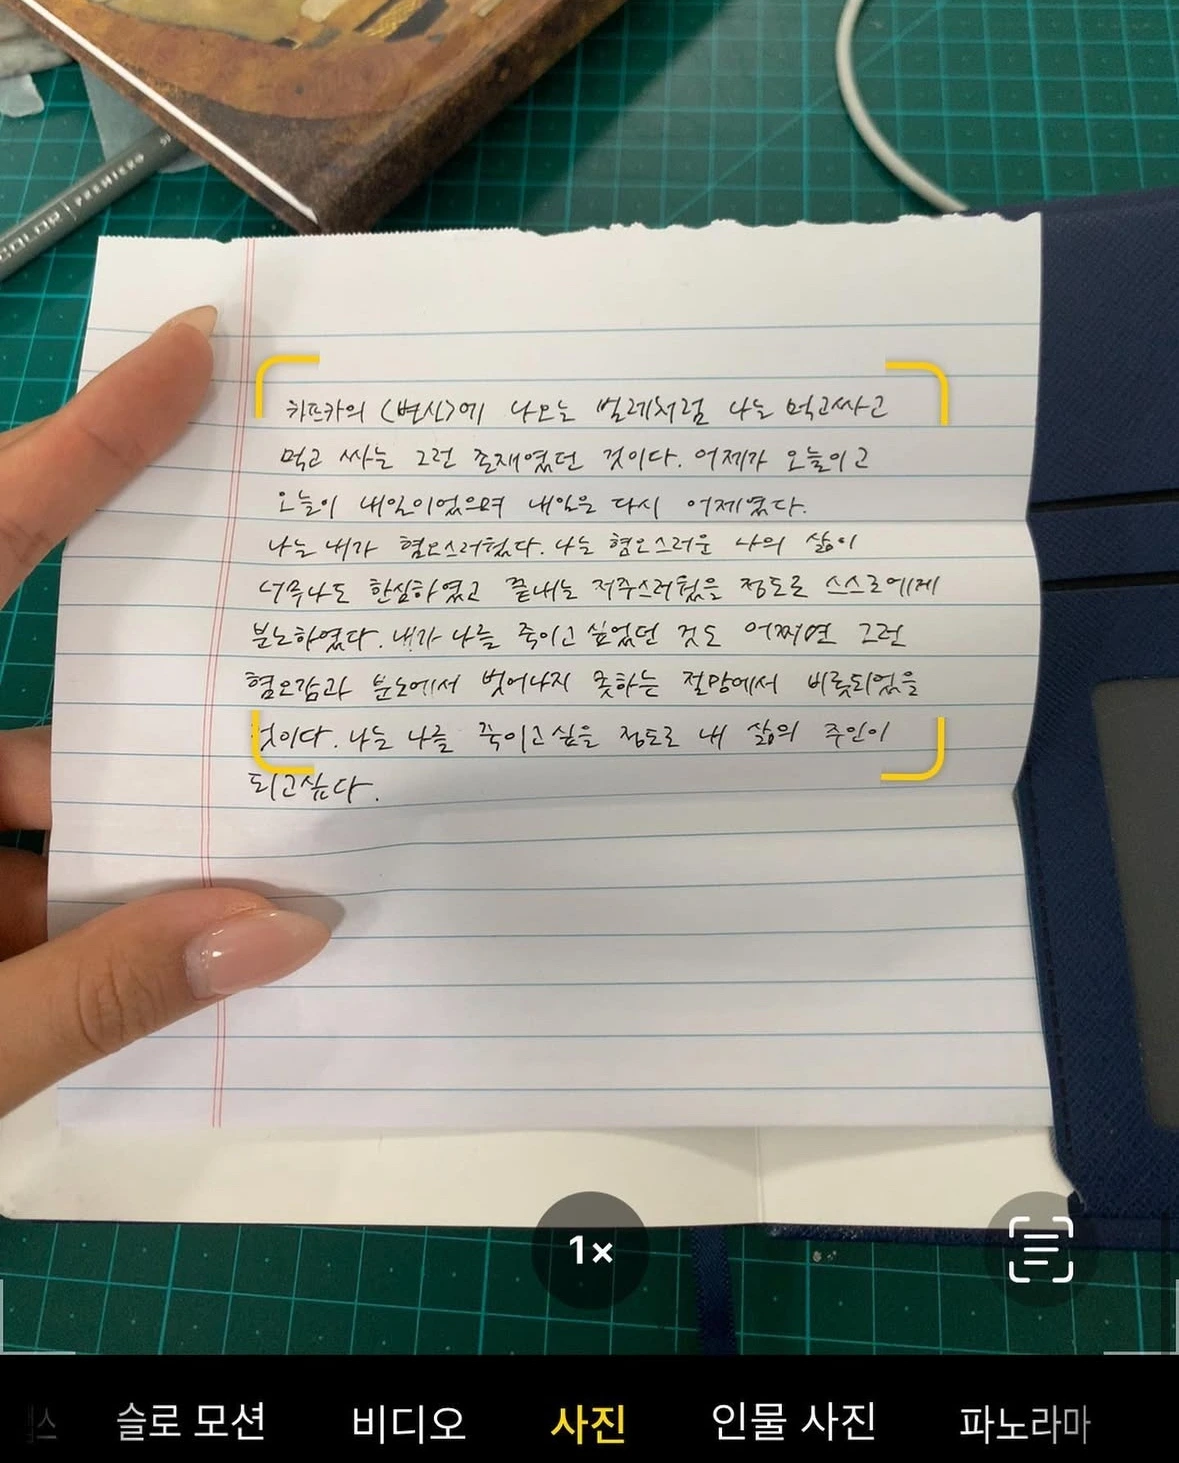 COLOR | PREMIERO
카프카의 <변신>에 나오는 벌레처럼 나는 먹고싸고
먹고 싸는 그런 존재였던 것이다. 어제가 오늘이고
오늘이 내일이었으며 내일은 다시 어제였다.
나는 내가 혐오스러웠다. 나는 혐오스러운 나의 삶이
너무나도 한심하였고 끝내는 저주스러웠을 정도로 스스로에게
분노하였다. 내가 나를 죽이고 싶었던 것도 어쩌면 그런
혐오감과 분노에서 벗어나지 못하는 절망에서 비롯되었을
것이다. 나는 나를 죽이고 싶을 정도로 내 삶의 주인이
되고싶다.
1×
슬로 모션 비디오 사진 인물 사진 파노라마